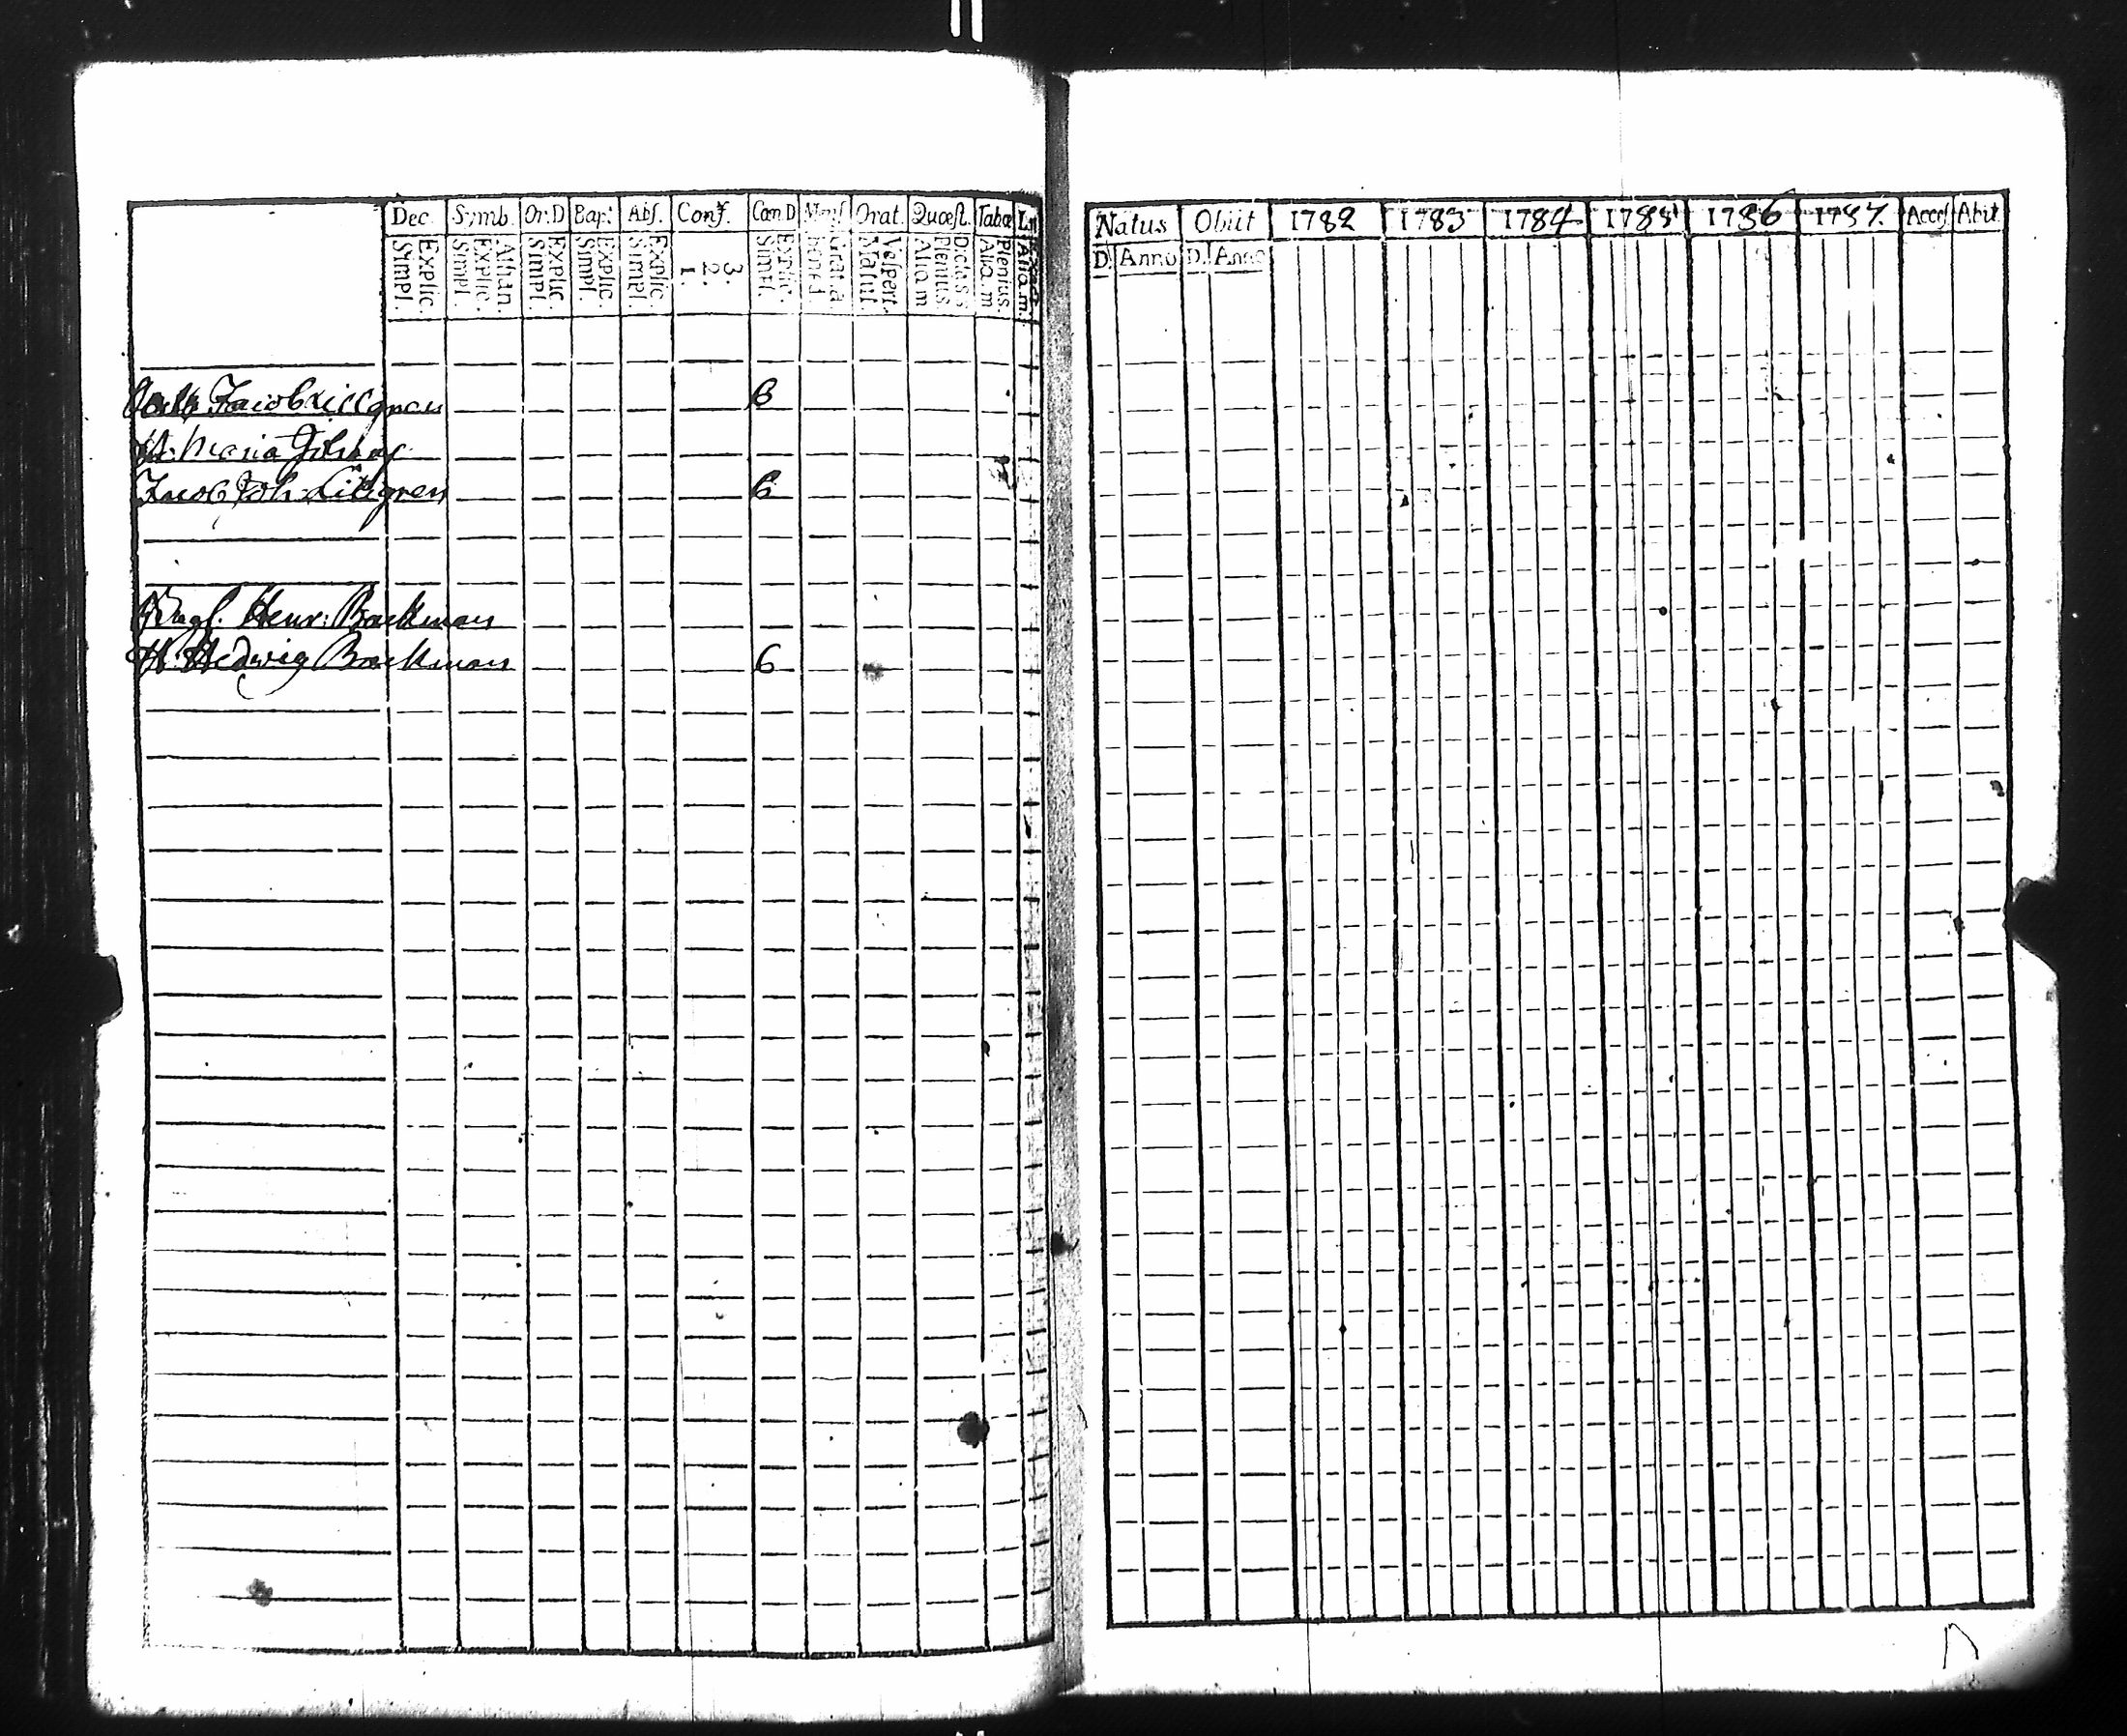 Dec. Symb. Or.D Bapt Abs. Conf. Cœn.D Mens Orat. Quœst. Tabœ
Explic. Simpl. Athan. Explic. Simpl. Explic. Simpl. Explic. Simpl. Explic. Simpl. 3. 2. 1. Explic. Simpl. Gratia Bened Vespert. Matut. Dictass Plenius Aliq.m Plenius. Aliq.m Aliq.m.
Jacob Lillgren 6
H. Maria Johns
Jacob Joh. Lillgren 6
Henr: Backman
H. Hedwig Backman 6
Natus Obiit 1782 1783 1784 1785 1786 1787 Access Abit
D. Anno D. Anno